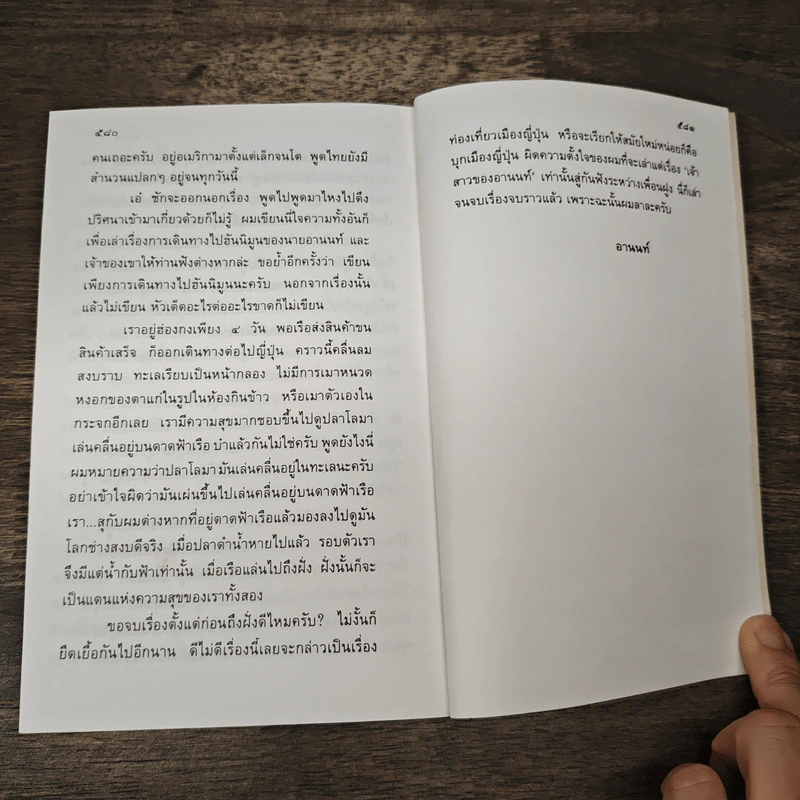 ๕๘๐
คนเถอะครับ อยู่อเมริกามาตั้งแต่เล็กจนโต พูดไทยยังมี
สำนวนแปลกๆ อยู่จนทุกวันนี้
เอ๋ ชักจะออกนอกเรื่อง พูดไปพูดมาไหงไปดึง
ปริศนาเข้ามาเกี่ยวด้วยก็ไม่รู้ ผมเขียนนี่ใจความทั้งอันก็
เพื่อเล่าเรื่องการเดินทางไปฮันนิมูนของนายอานนท์ และ
เจ้าของเขาให้ท่านฟังต่างหากล่ะ ขอย้ำอีกครั้งว่า เขียน
เพียงการเดินทางไปฮันนิมูนนะครับ นอกจากเรื่องนั้น
แล้วไม่เขียน หัวเด็ดอะไรต่ออะไรขาดก็ไม่เขียน
เราอยู่ฮ่องกงเพียง ๔ วัน พอเรือส่งสินค้าขน
สินค้าเสร็จ ก็ออกเดินทางต่อไปญี่ปุ่น คราวนี้คลื่นลม
สงบราบ ทะเลเรียบเป็นหน้ากลอง ไม่มีการเมาหนวด
หงอกของตาแก่ในรูปในห้องกินข้าว หรือเมาตัวเองใน
กระจกอีกเลย เรามีความสุขมากชอบขึ้นไปดูปลาโลมา
เล่นคลื่นอยู่บนดาดฟ้าเรือ บ๋าแล้วกันไม่ใช่ครับ พูดยังไงนี่
ผมหมายความว่าปลาโลมา มันเล่นคลื่นอยู่ในทะเลนะครับ
อย่าเข้าใจผิดว่ามันเผ่นขึ้นไปเล่นคลื่นอยู่บนดาดฟ้าเรือ
เรา...สุกับผมต่างหากที่อยู่ดาดฟ้าเรือแล้วมองลงไปดูมัน
โลกช่างสงบดีจริง เมื่อปลาดำน้ำหายไปแล้ว รอบตัวเรา
จึงมีแต่น้ำกับฟ้าเท่านั้น เมื่อเรือแล่นไปถึงฝั่ง ฝั่งนั้นก็จะ
เป็นแดนแห่งความสุขของเราทั้งสอง
ขอจบเรื่องตั้งแต่ก่อนถึงฝั่งดีไหมครับ? ไม่งั้นก็
ยืดเยื้อกันไปอีกนาน ดีไม่ดีเรื่องนี้เลยจะกล่าวเป็นเรื่อง
๕๘๑
ท่องเที่ยวเมืองญี่ปุ่น หรือจะเรียกให้สมัยใหม่หน่อยก็คือ
บุกเมืองญี่ปุ่น ผิดความตั้งใจของผมที่จะเล่าแต่เรื่อง 'เจ้า
สาวของอานนท์' เท่านั้นสู่กันฟังระหว่างเพื่อนฝูง นี่ก็เล่า
จนจบเรื่องจบราวแล้ว เพราะฉะนั้นผมลาละครับ
อานนท์